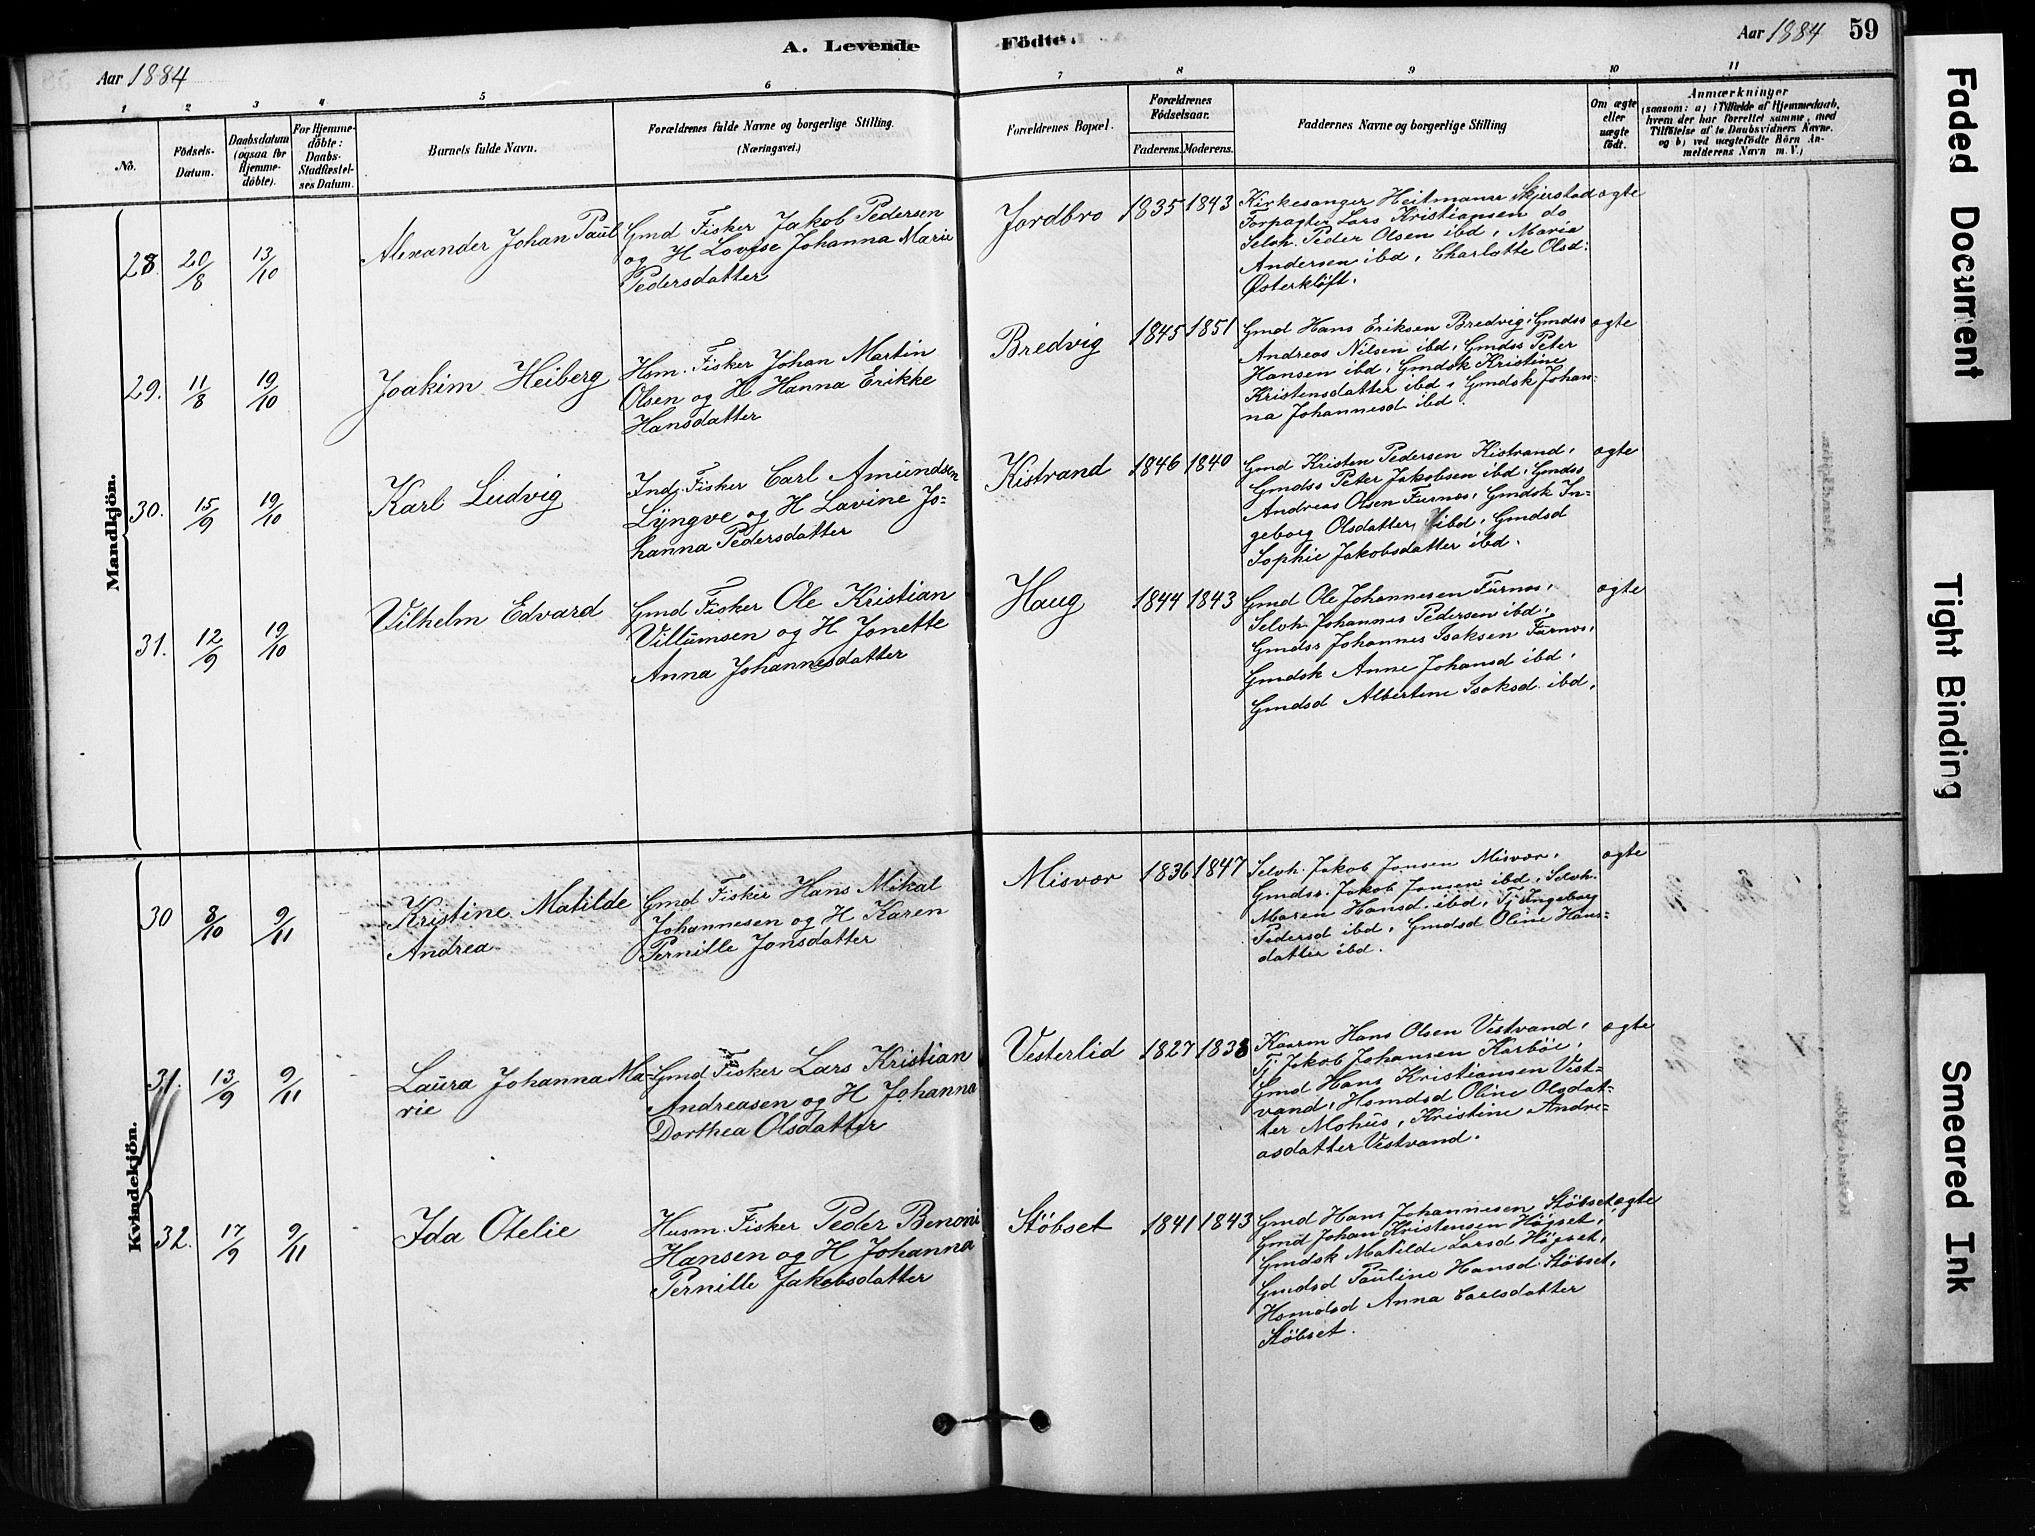 A. Levende Födte.
Aar 1884
Aar 1884 59
1 2 3 4 5 6 7 8 9 10 11
No.
Födsels-Datum.
Daabsdatum (ogsaa for Hjemme-döbte).
For Hjemme-döbte: Daabs-Stadfæstel-ses Datum.
Barnets fulde Navn.
Forældrenes fulde Navne og borgerlige Stilling.
(Næringsvei.)
Forældrenes Bopæl.
Forældrenes Födselsaar.
Faderens. Moderens.
Faddernes Navne og borgerlige Stilling
Om ægte eller uægte födt.
Anmærkninger
(saasom: a) i Tilfælde af Hjemmedaab, hvem der har forrettet samme, med Tilföielse af to Daabsvidners Navne. og b) ved uægtefödte Börn An-melderens Navn m. V.)
Mandkjön.
28. 20/8 13/10
Alexander Johan Paul
Gmd Fisker Jakob Pedersen
og H Lovise Johanna Marie
Pedersdatter
Jordbro 1835 1843
Kirkesanger Heitmann Skjerstad
Forpagter Lars Kristiansen do
Selvh. Peder Olsen ibd, Maria
Andersen ibd, Charlotte Olsd.
Østerkløft.
ægte
29. 11/8 19/10
Joakim Heiberg
Hsm. Fisker Johan Martin
Olsen og H Hanna Erikke
Hansdatter
Bredvig 1845 1851
Gmd Hans Eriksen Bredvig, Gmdss
Andreas Nilsen ibd, Gmdss Peter
Hansen ibd, Gmdsk Kristine
Kristensdatter ibd, Gmdsk Johan-
na Johannesd ibd.
ægte
30. 15/9 19/10
Karl Ludvig
Indj. Fisker Carl Amundsen
Lyngve og H Lavine Jo-
hanna Pedersdatter
Kistrand 1846 1840
Gmd Kristen Pedersen Kistrand,
Gmdss Peter Jakobsen ibd, Gmdss
Andreas Olsen Furnes, Gmdsk In-
geborg Olsdatter, ibd, Gmdsd
Sophie Jakobsdatter ibd.
ægte
31. 12/9 19/10
Vilhelm Edvard
Gmd Fisker Ole Kristian
Villumsen og H Jonette
Anna Johannesdatter
Haug 1844 1843
Gmd Ole Johannesen Furnes,
Selvh Johannes Pedersen ibd,
Gmdss Johannes Isaksen Furnes,
Gmdsk Anne Johansd ibd,
Gmdsd Albertine Isaksd. ibd,
ægte
Kvindekjön.
30 8/10 9/11
Kristine Matilde
Andrea
Gmd Fisker Hans Mikal
Johannesen og H Karen
Pernille Jonsdatter
Misvær 1836 1847
Selvh. Jakob Jonsen Misvær,
Gmdss. Jakob Jonsen ibd, Selvh.
Maren Hansd. ibd, Tj Ingeborg
Pedersd ibd, Gmdsd Oline Hans-
datter ibd.
ægte
31. 13/9 9/11
Laura Johanna Ma-
rie
Gmd Fisker Lars Kristian
Andreasen og H Johanna
Dorthea Olsdatter
Vesterlid 1827 1838
Kaarm Hans Olsen Vestvand,
Tj Jakob Johansen Karbøl,
Gmd Hans Kristiansen Vest-
vand, Hsmdsd Oline Olsdat-
ter Mohus, Kristine Andre-
asdatter Vestvand.
ægte
32. 17/9 9/11
Ida Otelie
Husm. Fisker Peder Benoni
Hansen og H Johanna
Pernille Jakobsdatter
Støbset 1841 1843
Gmd Hans Johannesen Støbset,
Gmd Johan Kristensen Høgset,
Gmdsk Matilde Larsd Høgset,
Gmdsd Pauline Hansd. Støbset,
Hsmdsd Anna Carlsdatter
Støbset.
ægte
Faded Document
Tight Binding
Smeared Ink